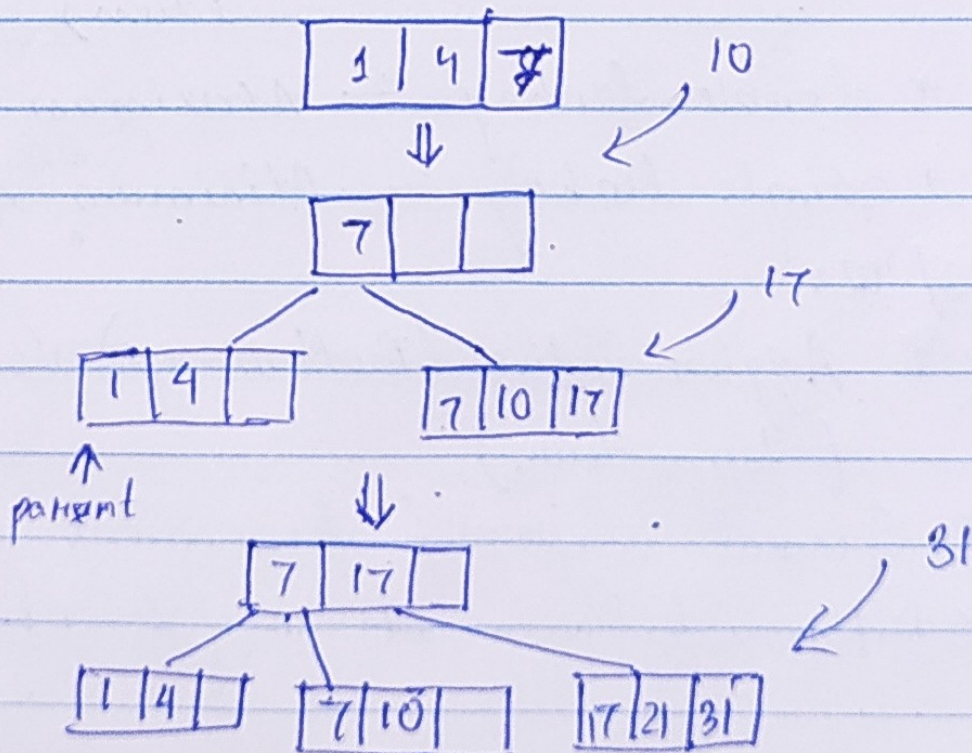 1 4 7
10
⇓
7
17
1 4
7 10 17
↑
parent
⇓
7 17
31
1 4
7 10
17 21 31